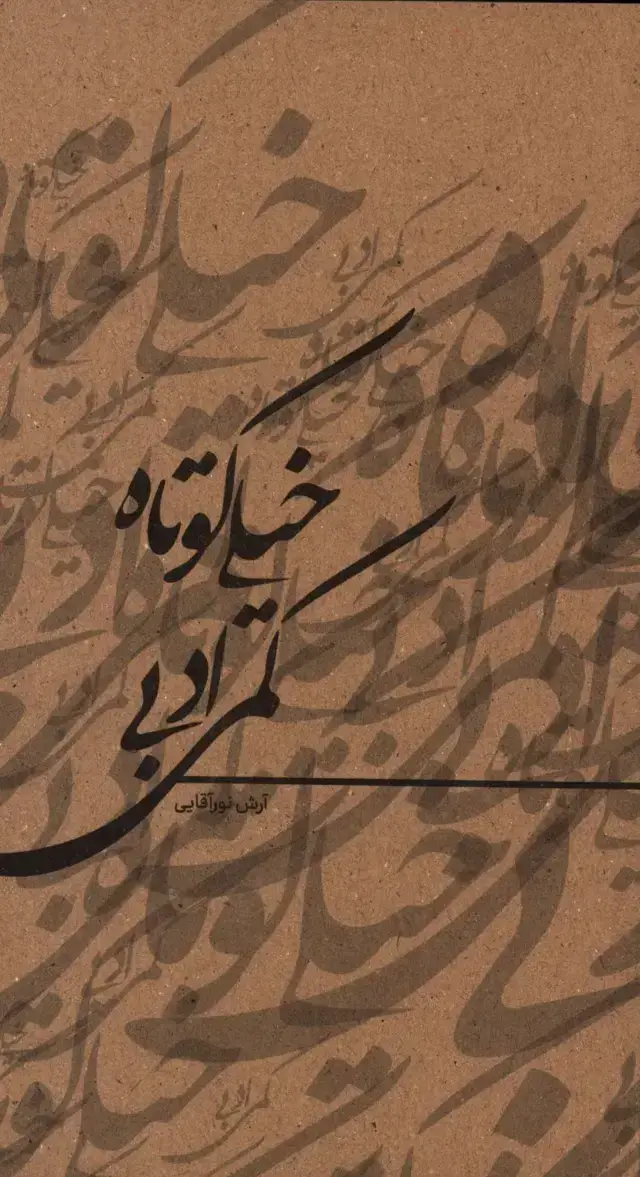 خیلی کوتاه
کمی ادبی
آرش نورآقایی